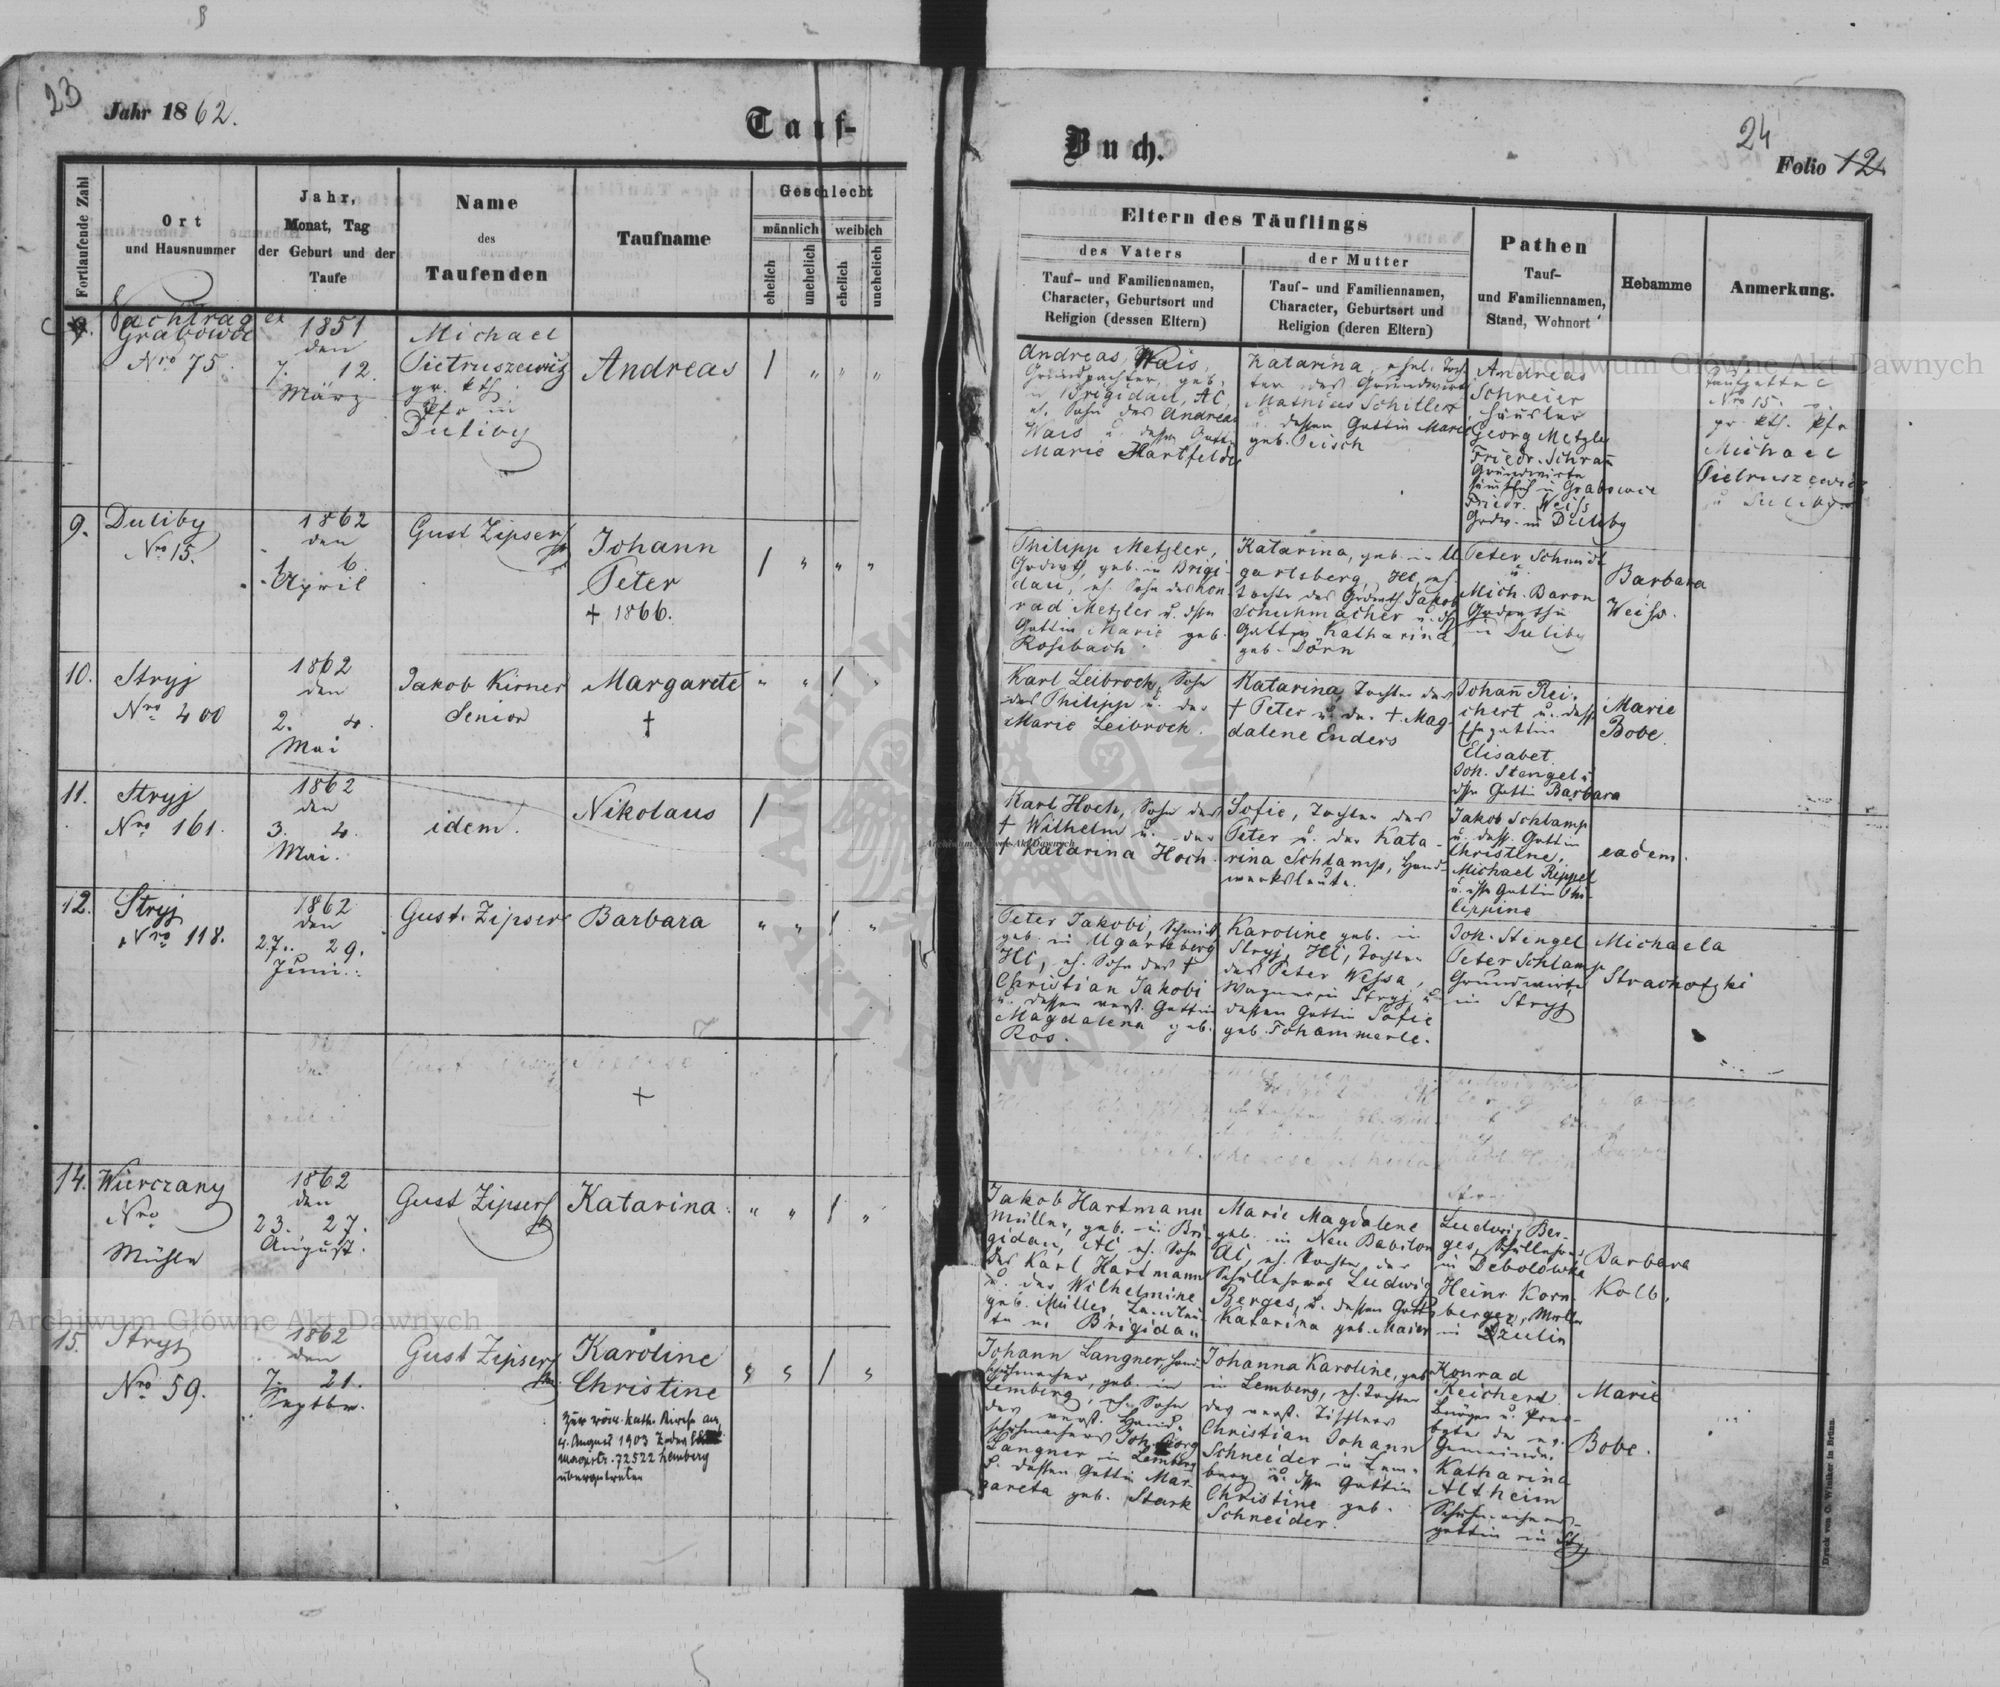 23
Jahr 1862.
Tauf-
Fortlaufende Zahl
Ort
und Hausnummer
Jahr,
Monat, Tag
der Geburt und der
Taufe
Name
des
Taufenden
Taufname
Geschlecht
männlich
weiblich
ehelich
unehelich
ehelich
unehelich
Nachtrag ex
Grabowce
Nro 75.
1851
den
7. 12.
März
Michael
Pietruszewicz
gr. kth.
Pfr in
Duliby
Andreas
9.
Duliby
Nro 15.
1862
den
1. 6.
April
Gust Zipser
Johann
Peter
+ 1866.
10.
Stryj
Nro 400
1862
den
2. 4.
Mai
Jakob Kirner
Senior
Margarete
†
11.
Stryj
Nro 161.
1862
den
3. 4.
Mai.
idem.
Nikolaus
12.
Stryj
Nro 118.
1862
den
27. 29.
Juni.
Gust. Zipser
Barbara
+
14.
Wierczany
Nro
Mühle
1862
den
23. 27.
August.
Gust Zipser
Katarina.
15.
Stryj
Nro 59.
1862
den
7. 21.
Septbr.
Gust Zipser
Karoline
Christine
zur röm. kath. Kirche am
4. August 1903
72522 Lemberg
übergetreten
Buch.
24
Folio 12
Eltern des Täuflings
des Vaters
Tauf- und Familiennamen,
Character, Geburtsort und
Religion (dessen Eltern)
der Mutter
Tauf- und Familiennamen,
Character, Geburtsort und
Religion (deren Eltern)
Pathen
Tauf-
und Familiennamen,
Stand, Wohnort
Hebamme
Anmerkung.
Andreas Wais,
Grundpächter, geb.
in Brigidau, AC,
eh. Sohn des Andreas
Wais u. dessen Gattin
Marie Hartfelder
Katarina, ehel. Toch-
ter des Grundwirts
Mathias Schiller
u. dessen Gattin Marie
geb. Peisch
Andreas
Schreier
Häusler
Georg Metzler
Friedr. Schram
Grundwirte
sämtlich in Grabowce
Friedr. Weiss
Grdw. in Duliby
Nro 15.
gr. kth. Pfr
Michael
Pietruszewicz
in Duliby
Philipp Metzler,
Grdwth, geb. in Brigi-
dau, eh. Sohn des Kon-
rad Metzler u. dssn
Gattin Marie geb.
Rossbach.
Katarina, geb. in U-
gartsberg, HC, eh.
Tochter des Grdwth Jakob
Schuhmacher u. dss
Gattin Katharina
geb. Dörn
Peter Schmidt
u.
Mich. Baron
Grdwrthe
in Duliby
Barbara
Weiss.
Karl Leibrock, Sohn
des Philipp u. der
Marie Leibrock.
Katarina, Tochter des
+ Peter u. der + Mag-
dalene Enders
Johann Rei-
chert u. dess
Ehegattin
Elisabet.
Joh. Stengel u.
dssn Gattin Barbara
Marie
Bobe.
Karl Hoch, Sohn des
+ Wilhelm u. der
+ Katarina Hoch.
Sofie, Tochter des
Peter u. der Kata-
rina Schlamp, Hand-
werksleute.
Jakob Schlamp
u. dess. Gattin
Christine,
Michael Rippel
u. dssn Gattin Phi-
lippine
eadem.
Peter Jakobi, Schmidt,
geb. in Ugartsberg
HC, eh. Sohn des +
Christian Jakobi
u. dessen verst. Gattin
Magdalena geb.
Ros.
Karoline geb. in
Stryj, HC, Tochter
des Peter Wessa,
Wagner in Stryj, u.
dessen Gattin Sofie
geb. Tohammerle.
Joh. Stengel
Peter Schlamp
Grundwirte
in Stryj
Michaela
Strachotzki
Jakob Hartmann
Müller, geb. in Bri-
gidau, AC, eh. Sohn
des Karl Hartmann
u. der Wilhelmine
geb. Müller, Landleu-
te in Brigidau
Marie Magdalene
geb. in Neu Babilon
AC, eh. Tochter des
Schullehrers Ludwig
Berges, u. dessen Gattin
Katarina geb. Maier
Ludwig Ber-
ges, Schullehrer
in Debolowka
Heinr Korn-
berger, Müller
in Dzulin
Barbara
Kolb.
Johann Langner, Hand-
schuhmacher, geb. in
Lemberg, eh. Sohn
des verst. Hand-
schuhmachers Joh. Georg
Langner in Lemberg
u. dessen Gattin Mar-
gareta geb. Stark
Johanna Karoline, geb.
in Lemberg, eh. Tochter
des verst. Tischlers
Christian Johann
Schneider in Lem-
berg u. dssn Gattin
Christine geb.
Schneider.
Konrad
Reicherd
Bürger u. Pres-
byter der ev.
Gemeinde.
Katharina
Altheim
Schuhmachers-
gattin in Stryj
Marie
Bobe.
Druck von C. Winiker in Brünn.
Archiwum Główne Akt Dawnych
Archiwum Główne Akt Dawnych
Archiwum Główne Akt Dawnych